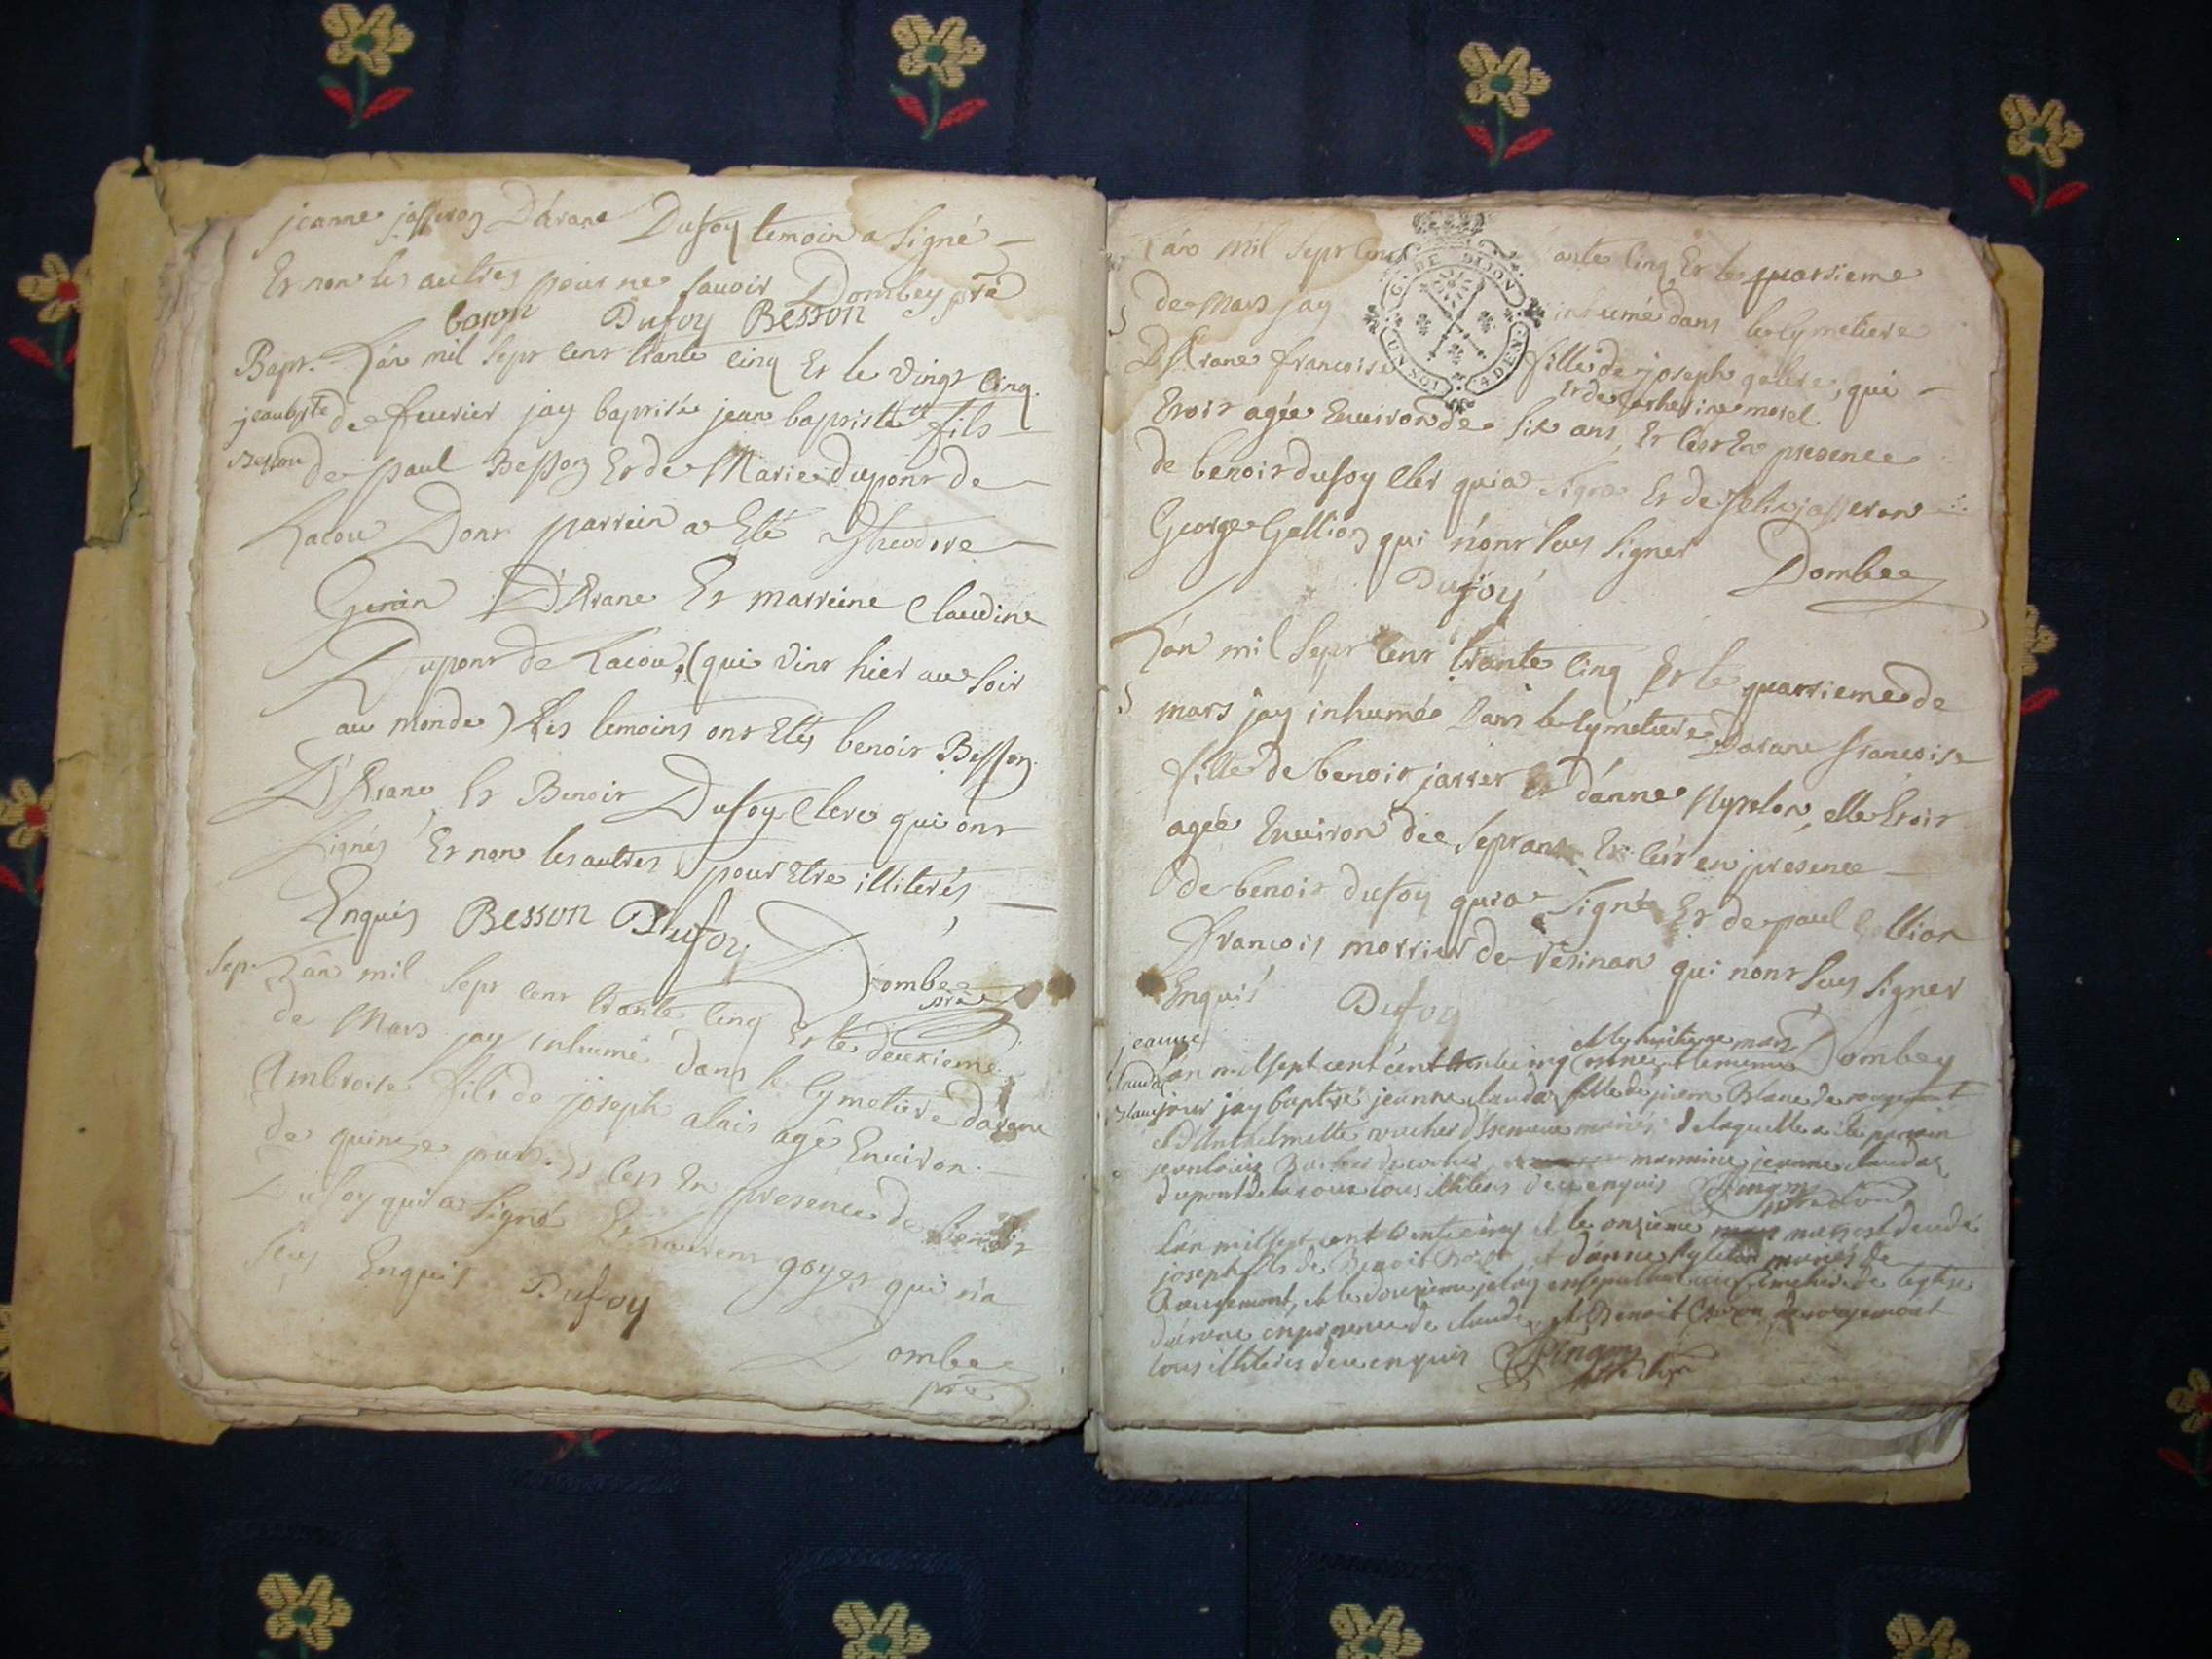 jeanne jasseron Darane Dufoy temoin a signé
Et non les aultres pour ne sauoir Dombey pre
boron Dufoy Besson
Bapt. L'an mil sept cent trante cinq Et le vingt cinq
jeanbpte de feurier jay baptisée jean baptiste fils
Besson de paul Besson Et de Marie dupont de
Lacou Dont parrein a Eté Theodore
Genin D'Arane Et marreine Claudine
Dupont de Lacou, (qui vint hier au soir
au monde) Les temoins ont Etés benoit Besson
D'Arane Et Benoit Dufoy Clerc qui ont
signés Et non les aultres pour Etre illiterés
Enquis Besson Dufoy
Dombee pre
Sep. L'an mil sept cent trante cinq Et le deuxieme
de Mars jay inhumé dans le Cymetiere darane
Ambroise fils de joseph alais agé Enuiron
de quinze jours. Et cest En presence de benoit
Dufoy qui a signé Et Laurent goyet qui n'a
sceu Enquis Dufoy
Dombee
pre
L'an mil sept cent ante cinq Et le quatrieme
S de Mars jay inhumé dans le Cymetiere
D'Arane francoise fille de joseph galere, qui
Et de catherine morel
Etoit agée Enuiron de six ans, Et cest En presence
de benoit dufoy Cler qui a signé Et de felix jasseron
George Gallion qui n'ont sceu signer
Dufoy Dombee
L'an mil sept cent trante cinq Et le quatrieme de
S mars jay inhumée dans le Cymetiere Darane francoise
fille de benoit jarrer Et d'anne , elle Etoit
agée Enuiron dee sept ans Et cest en presence
de benoit dufoy qui a signé Et de paul Gallion
francois morrier de resinan qui n'ont sceu signer
Enquis Dufoy
Dombey
jeanne
clauda L'an mil sept cent cent trente cinq et le huitieme mars nee et le meme
Blanc jour jay baptisé jeanne clauda fille de pierre Blanc de rougemont
et d'Anthelmette vuacher mariés de laquelle a été parrain
jean louis marraine jeanne clauda
dupont de lacoux tous illiteres deue enquis
L'an mil sept cent trente cinq et le onzieme mars est decedé
joseph fils de Benoit et d'anne mariés de
Rougemont, et le douzieme je l'ay ensepulturé au cimetier de leglise
d'arane en presence de claude et Benoit de rougemont
tous illiteres deue enquis
G. DE DIJON
UN SOL 4 DEN.